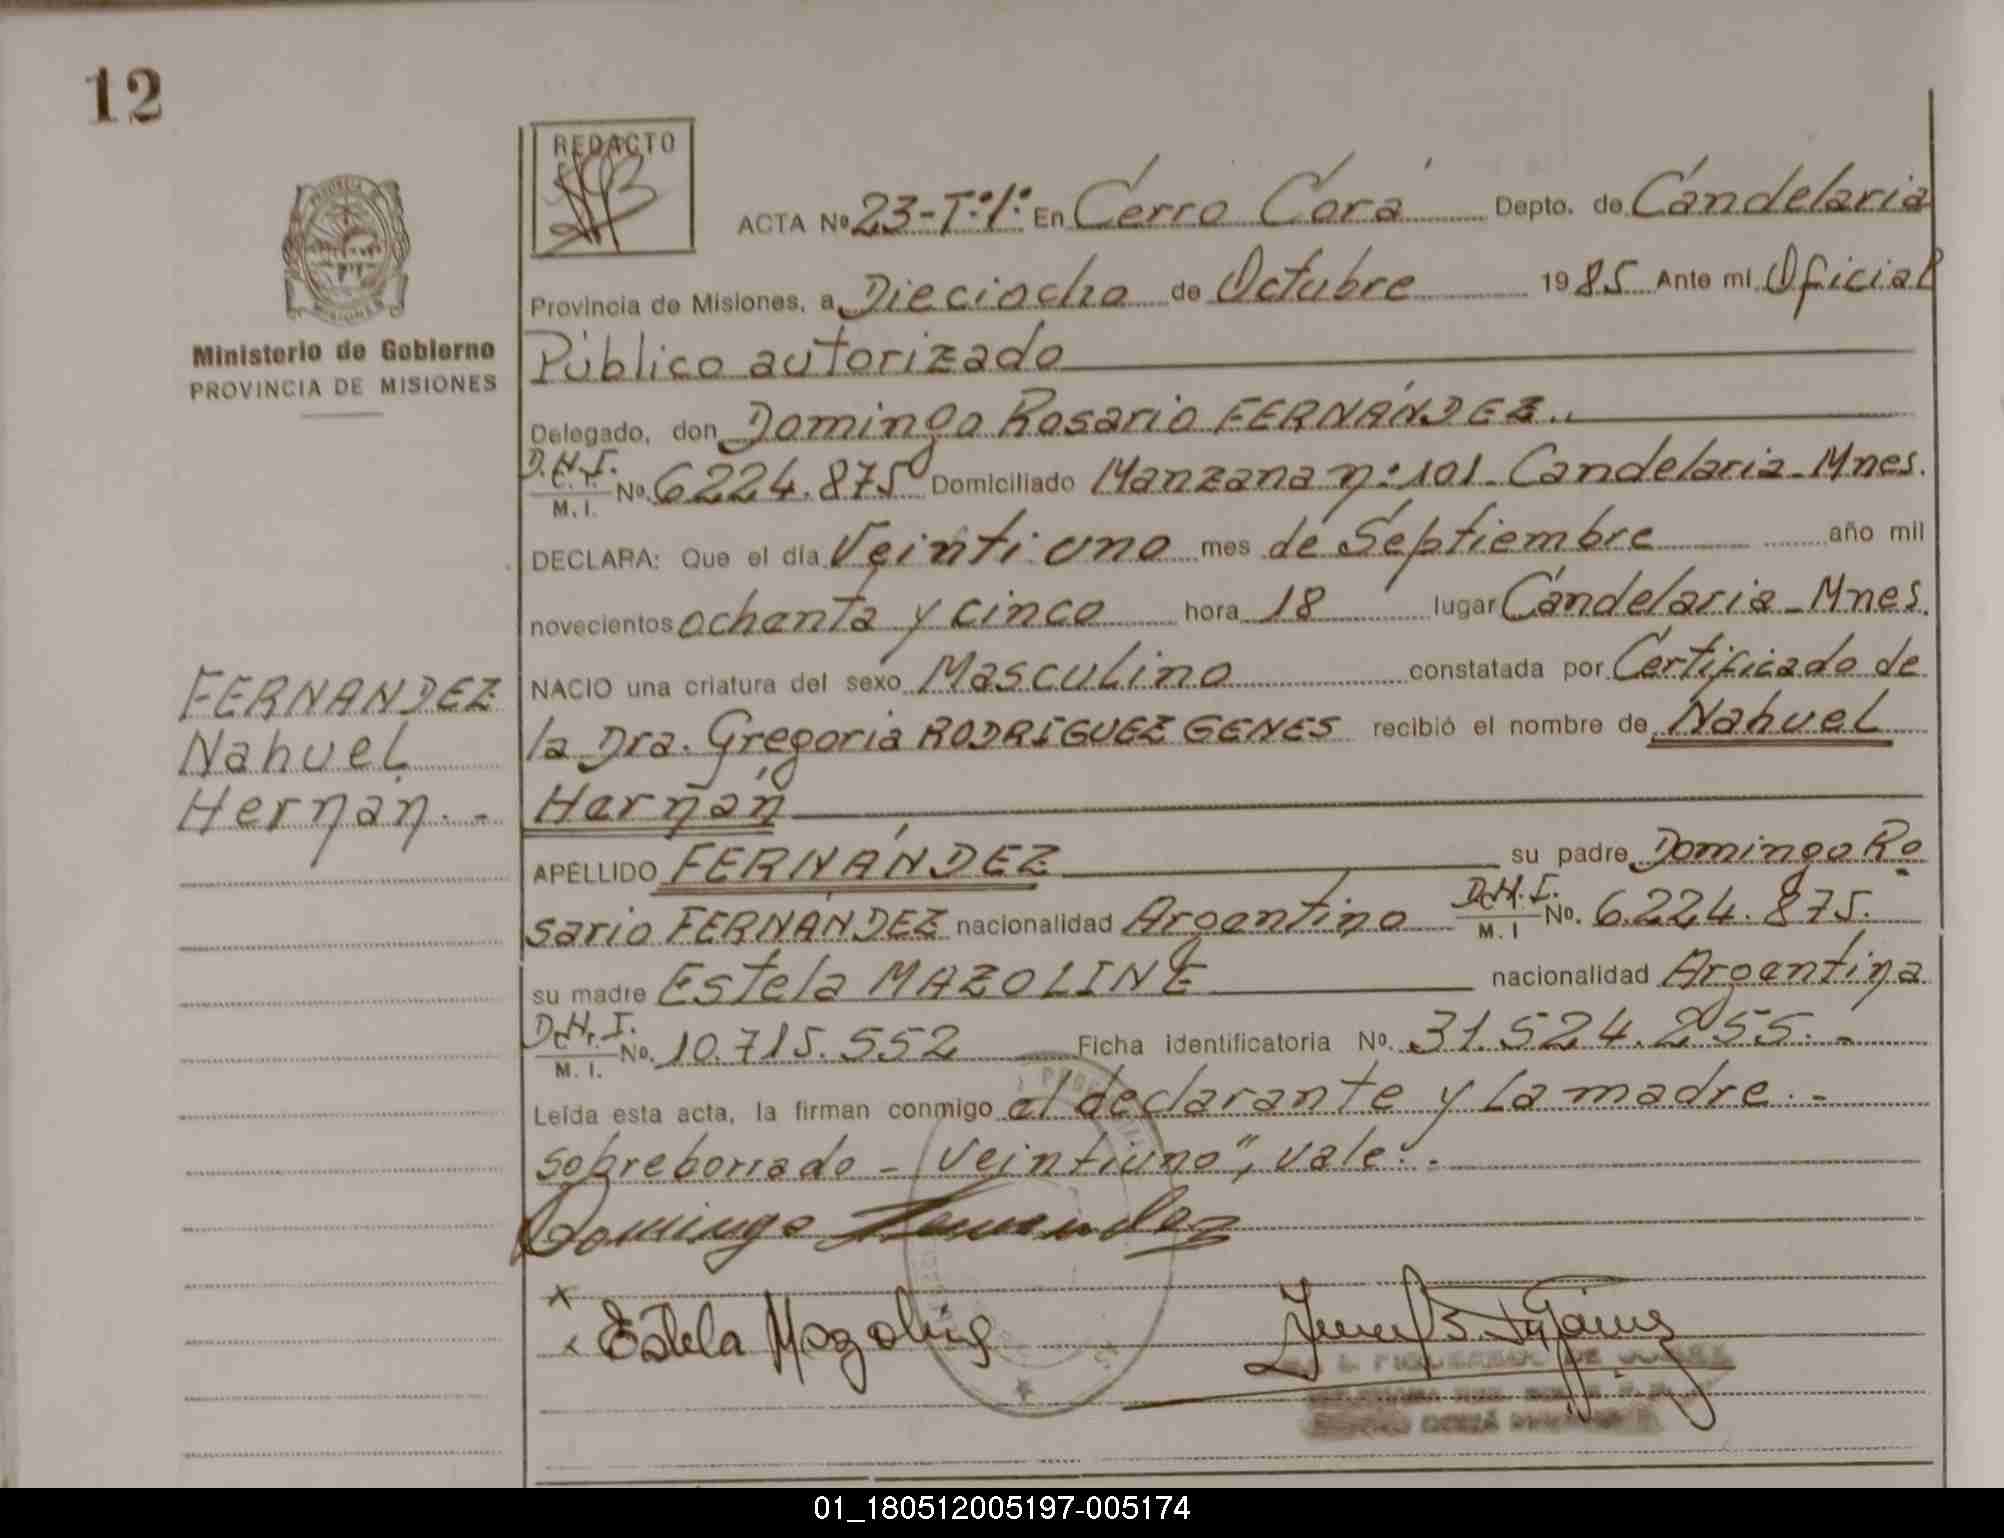 12
REDACTO
ACTA Nº 23-Tº1º En Cerro Corá Depto. de Candelaria
Ministerio de Gobierno
PROVINCIA DE MISIONES
Provincia de Misiones, a Dieciocho de Octubre 1985 Ante mí Oficial
Público autorizado
Delegado, don Domingo Rosario FERNÁNDEZ..
D.N.I.
C.I.
M.I. No. 6224.875 Domiciliado Manzana nº 101 - Candelaria - Mnes.
DECLARA: Que el día Veintiuno mes de Septiembre año mil
novecientos ochenta y cinco hora 18 lugar Candelaria - Mnes.
NACIO una criatura del sexo Masculino constatada por Certificado de
la Dra. Gregoria RODRÍGUEZ GENES recibió el nombre de Nahuel
Hernán
FERNANDEZ
Nahuel
Hernán. -
APELLIDO FERNÁNDEZ su padre Domingo Ro
sario FERNÁNDEZ nacionalidad Argentino D.N.I. C.I. M.I No. 6.224.875.
su madre Estela MAZOLINE nacionalidad Argentina
D.N.I.
C.I.
M.I. No. 10.715.552 Ficha identificatoria No. 31.524.255. -
Leída esta acta, la firman conmigo el declarante y la madre. -
sobreborrado - "Veintiuno", vale. -
Domingo Fernandez
x
x Estela Mazoline
01_180512005197-005174